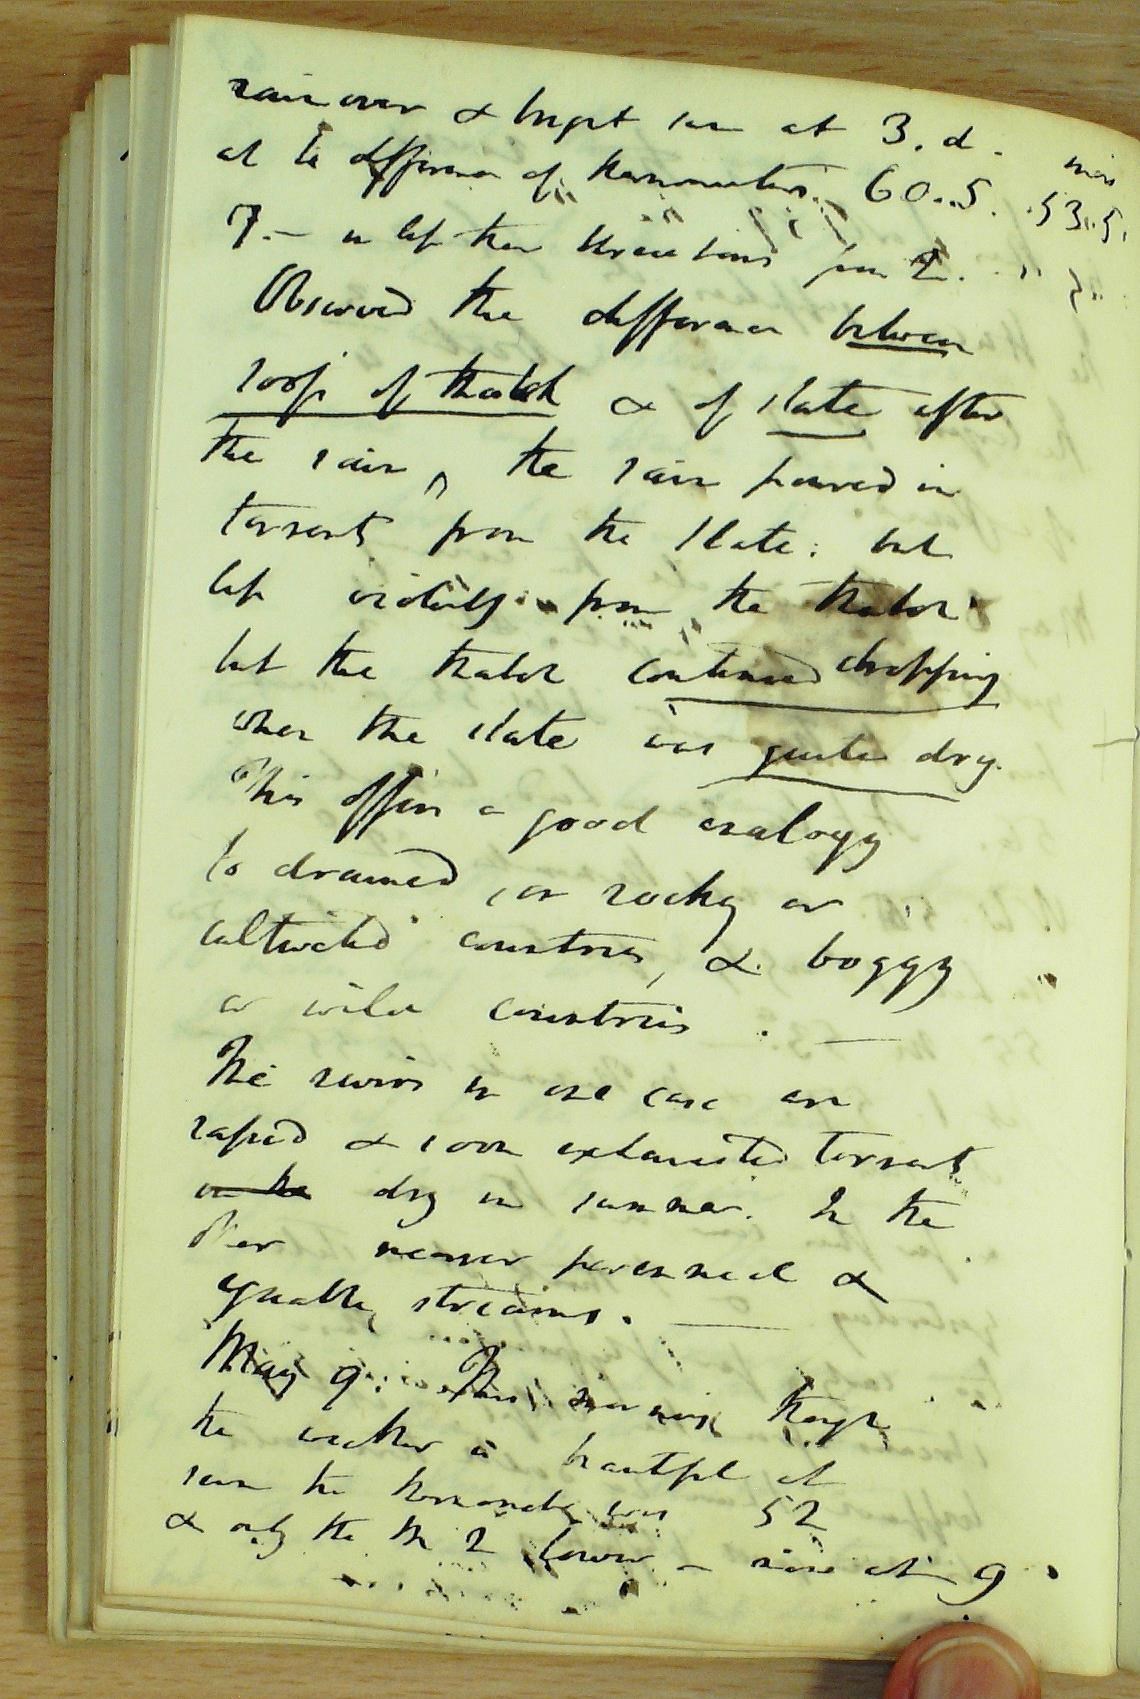 rain over & bright sun at 3. d.
at the difference of thermometers. 60..5. 53.5.
7. – in less than three hours from 2.
Observed the difference between
roofs of thatch & of slate after
the rain, the rain poured in
torrents from the slate: but
less violently from the thatch
but the thatch continued dropping
when the slate was quite dry.
This offers a good analogy
to drained, or rocky or
cultivated countries, & boggy
or wild countries. —
The rivers in one case are
rapid & soon exhausted torrents
dry in summer. In the
other meaner perennial &
equable streams. —
May 9. This morning though
the weather is beautiful at
seven the thermometer was 52
& only the 2 lower – now at 9